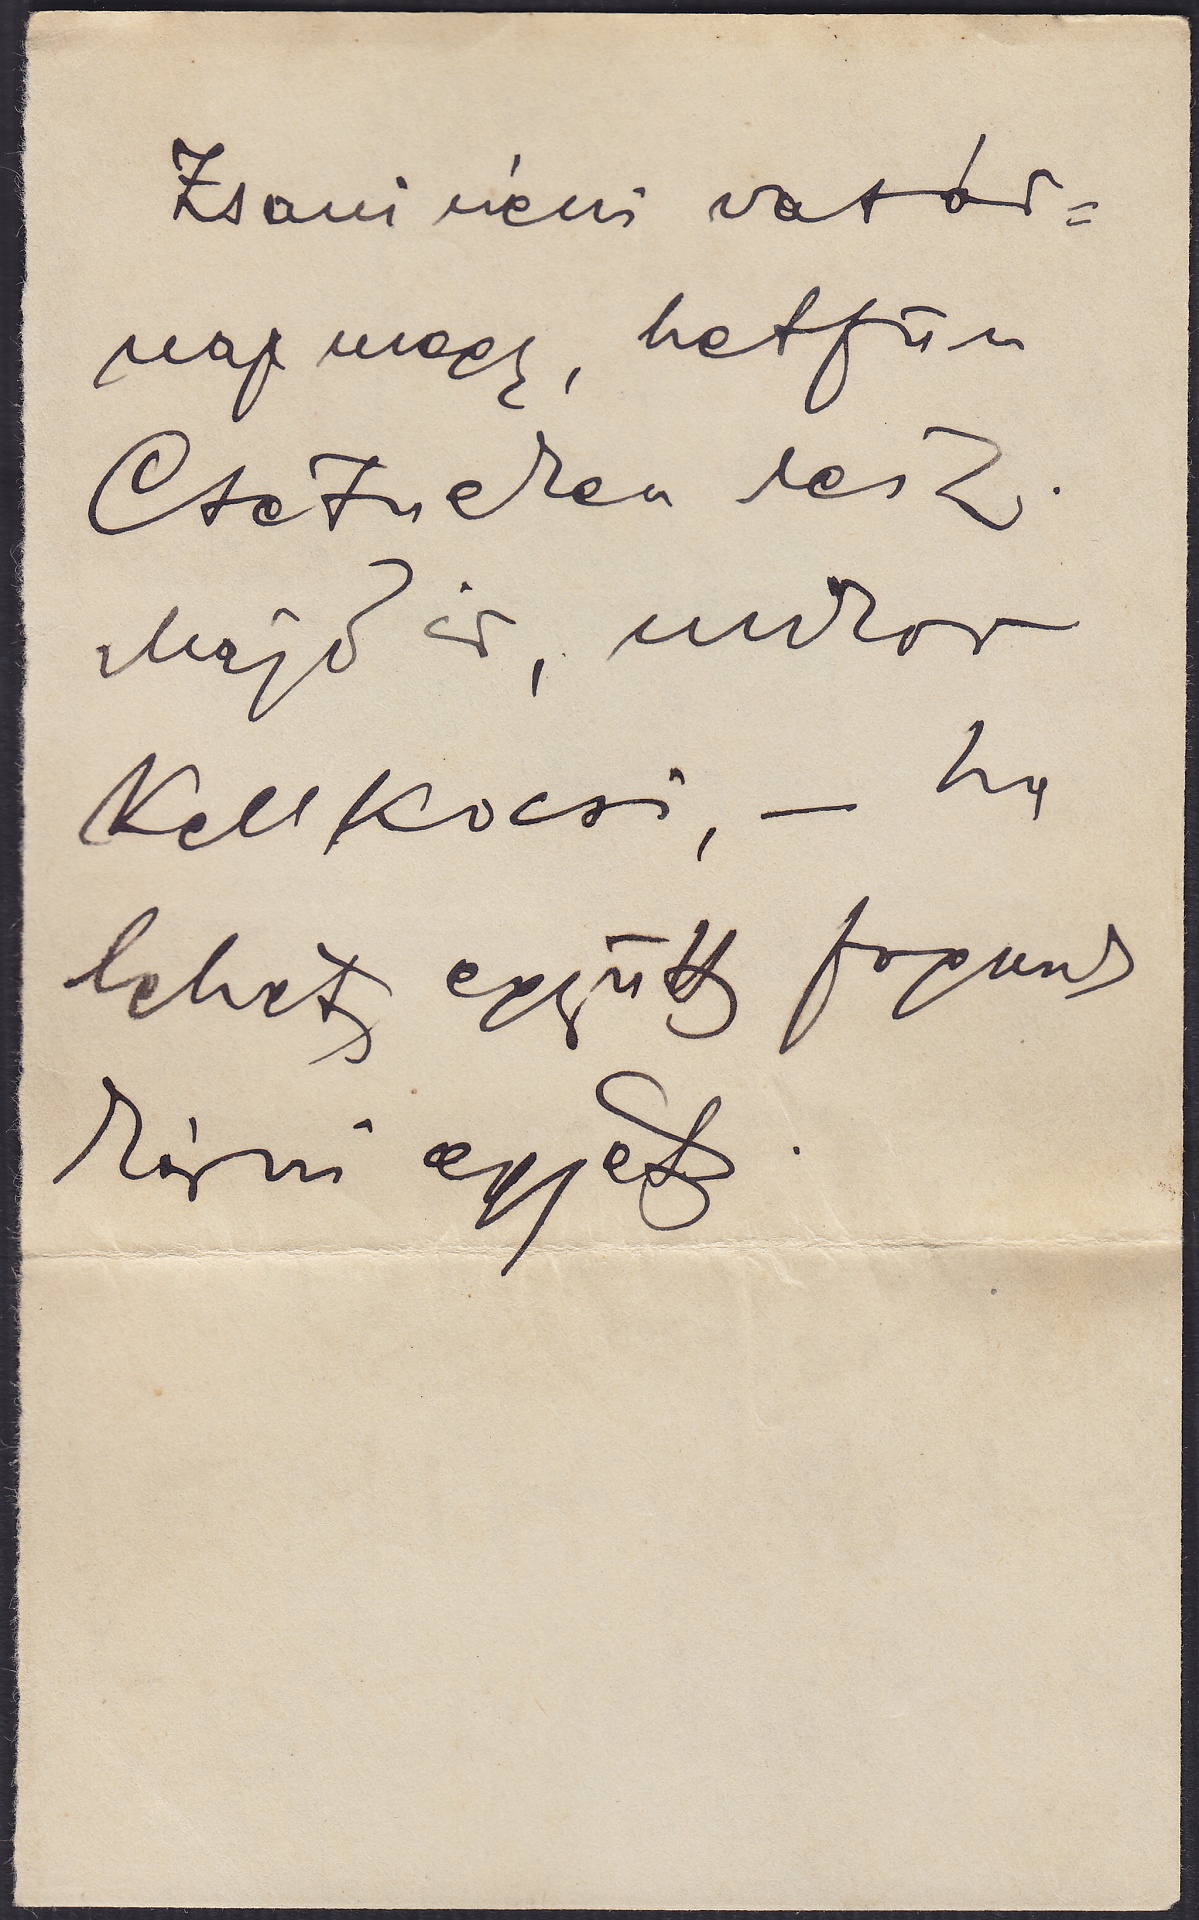 Zsani néni vasár=
nap megy, hetfün
Csetneken lesz.
Majd ir, mikor
Kell kocsi, — ha
lehet, együtt fogunk
kárni egyet.